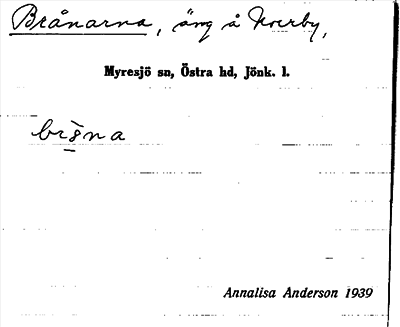 Brånarna, äng å Norrby,
Myresjö sn, Östra hd, Jönk. l.
Annalisa Anderson 1939